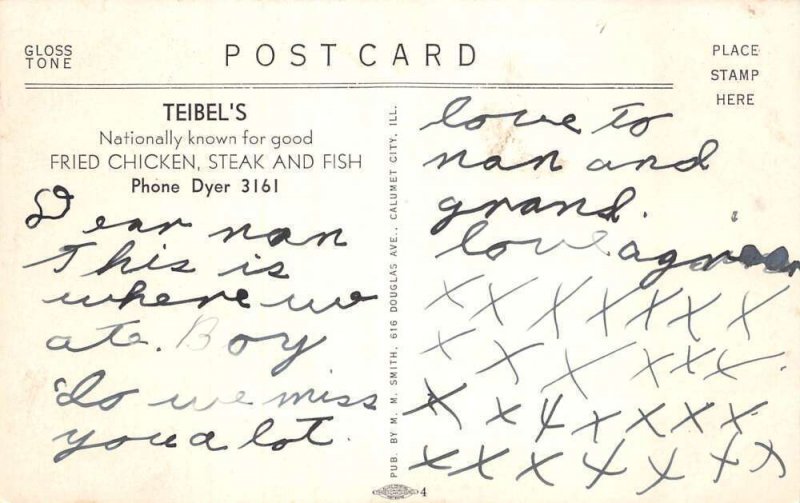 GLOSS TONE
POST CARD
PLACE STAMP HERE
TEIBEL'S
Nationally known for good
FRIED CHICKEN, STEAK AND FISH
Phone Dyer 3161
Dear nan
This is
where we
ate. Boy
do we miss
you a lot.
PUB. BY M. M. SMITH, 616 DOUGLAS AVE., CALUMET CITY, ILL.
4
love to
nan and
grand.
love
X X X X X X X
X X X X X X
X X X X X X X
X X X X X X X